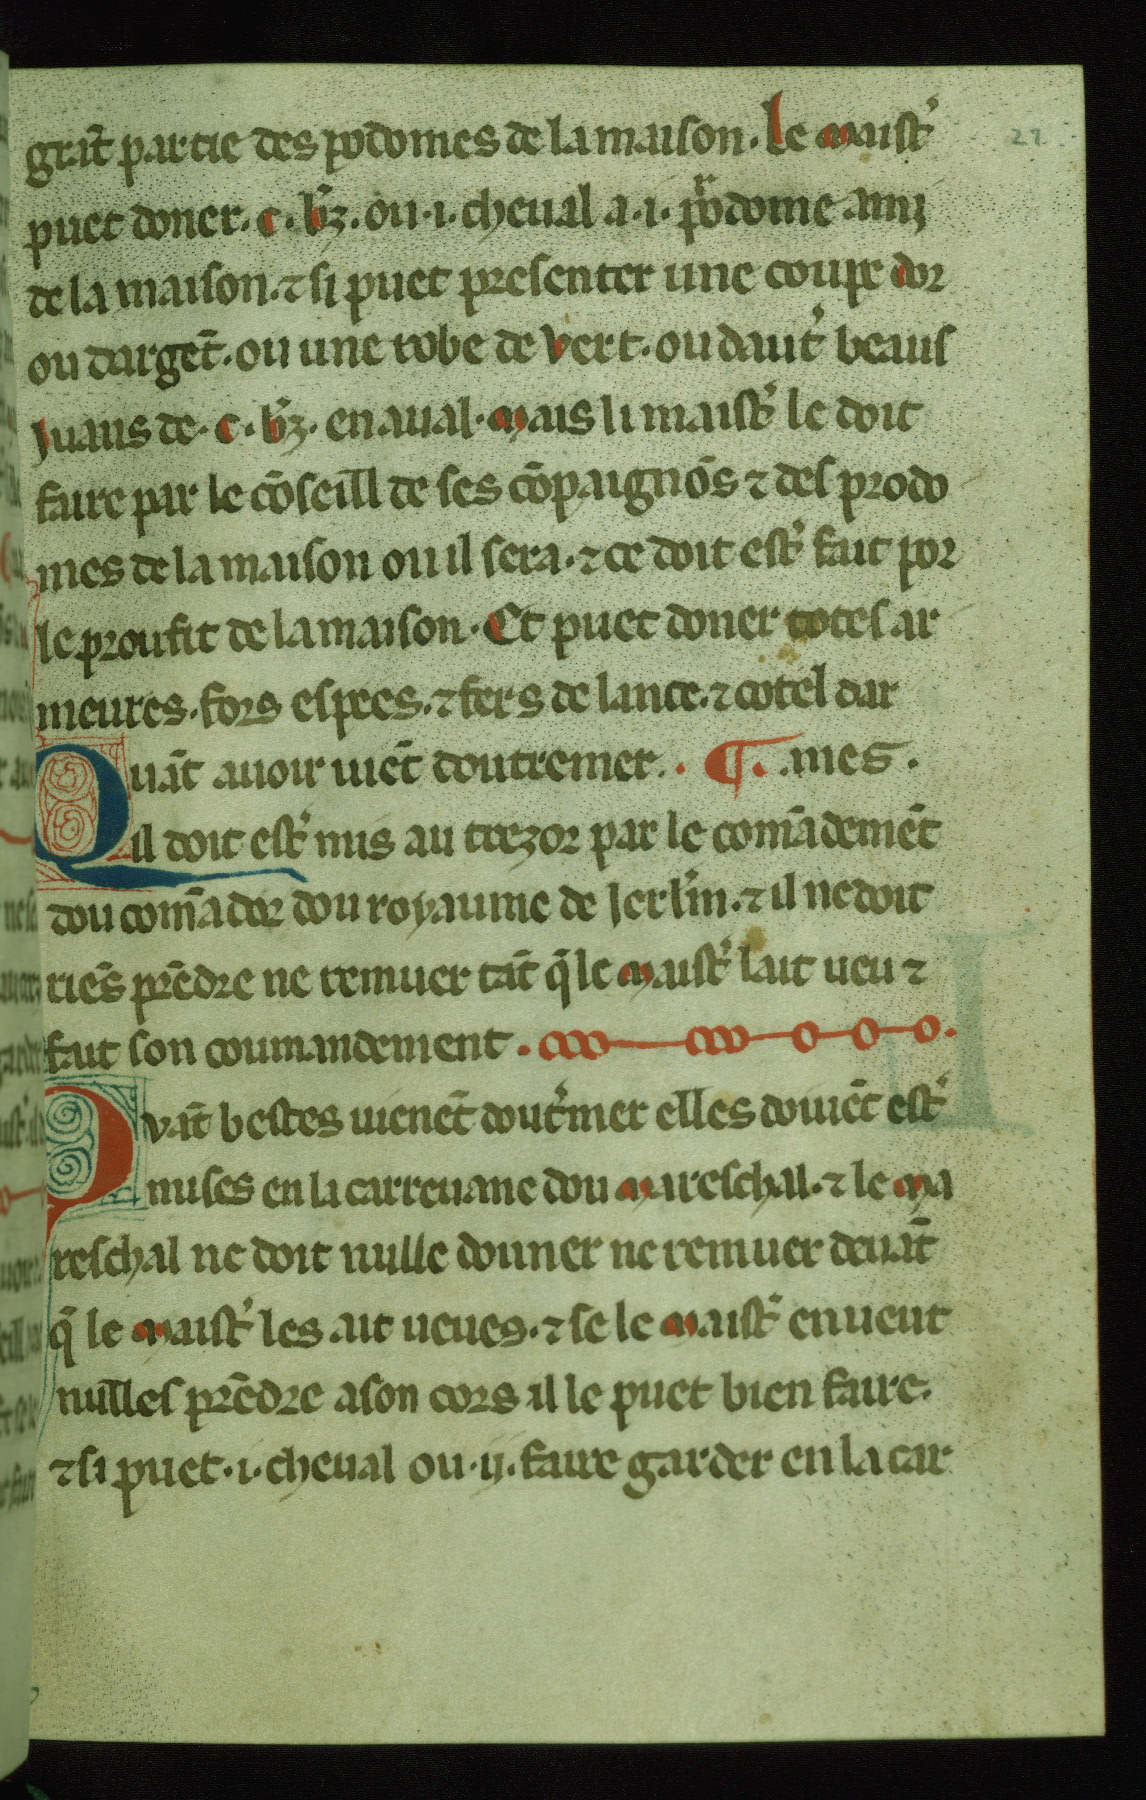 grāt partie des ꝓdomes de la maison. Le maistʼ
puet doner. c. bꝫ. ou .i. cheual a .i. prodome amī
de la maison. ⁊ si puet presenter une coupe dor
ou dargēt. ou une robe de vert. ou dautʼ beaus
Juaus de .c. bꝫ. en aual. mais li maistʼ le doit
faire par le cōseill de ses cōpaignōs ⁊ des prodo
mes de la maison ou il sera. ⁊ ce doit estʼ fait por
le proufit de la maison. Et puet doner totes ar
meures. fors espees. ⁊ fers de lance. ⁊ cotel dar
Quāt auoir uiēt doutremer. ¶ . mes.
il doit estʼ mis au trezor par le comādemēt
dou comādor dou royaume de Jerlʼm. ⁊ il ne doit
riēs prēdre ne remuer tāt q̄ le maistʼ lait ueu ⁊
fait son coumandement.
Qvāt bestes uienēt doutʼmer elles douiēt estʼ
mises en la carreuane dou mareschal. ⁊ le ma
reschal ne doit nulle donner ne remuer deuāt
q̄ le maistʼ les ait ueues. ⁊ se le maistʼ en ueut
nulles prēdre a son cors il le puet bien faire.
⁊ si puet .i. cheual ou .ij. faire garder en la car